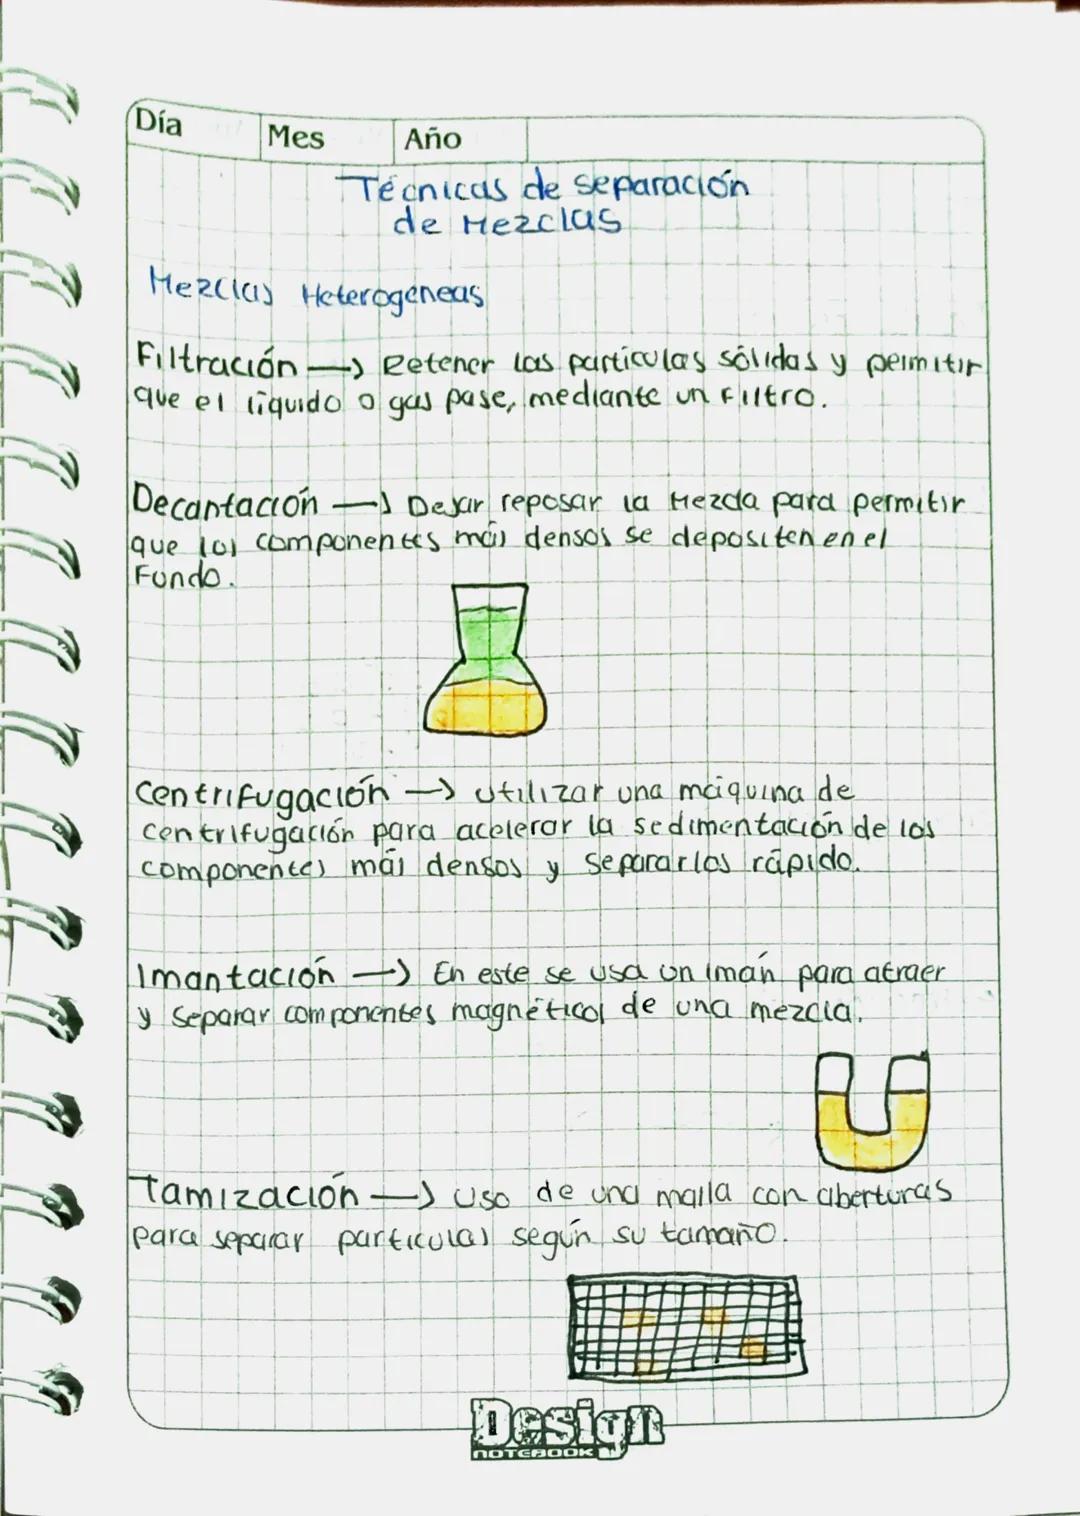 Día Mes Año
Técnicas de separación
de Mezclas
Mezclas Heterogéneas
Filtración → Retener las partículas sólidas y permitir
que el líquido o gas pase, mediante un Filtro.
Decantación → Dejar reposar la Mezcla para permitir
que los componentes más densos se depositen en el
Fondo.
Centrifugación → Utilizar una máquina de
centrifugación para acelerar la sedimentación de los
componentes más densos y separarlos rápido.
Imantación → En este se usa un imán para atraer
y separar componentes magnéticos de una mezcla.
Tamización → Uso de una malla con aberturas
para separar partículas según su tamaño.
Design
NOTEBOOK